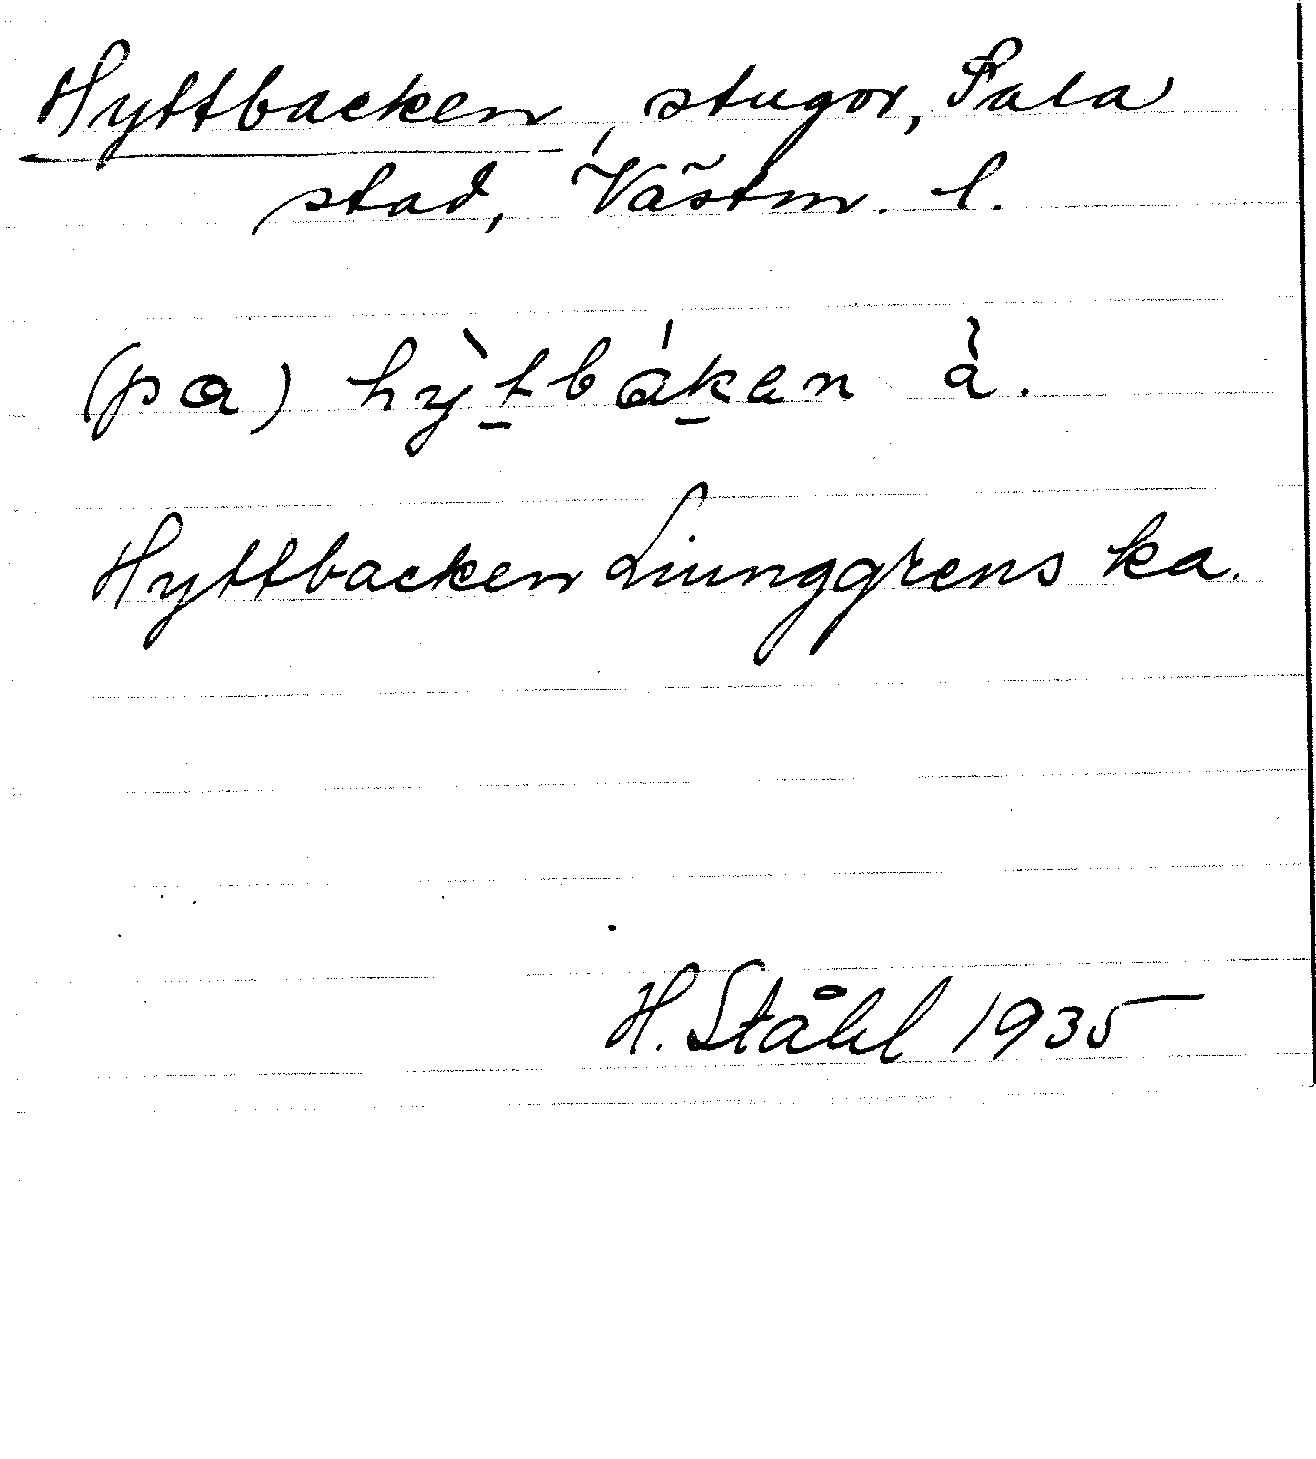 Hyttbacken, stugor, Sala
stad, Västm. l.
(pa) hỳtbáken à.
Hyttbacken Liunggrens ka.
H. Ståhl 1935